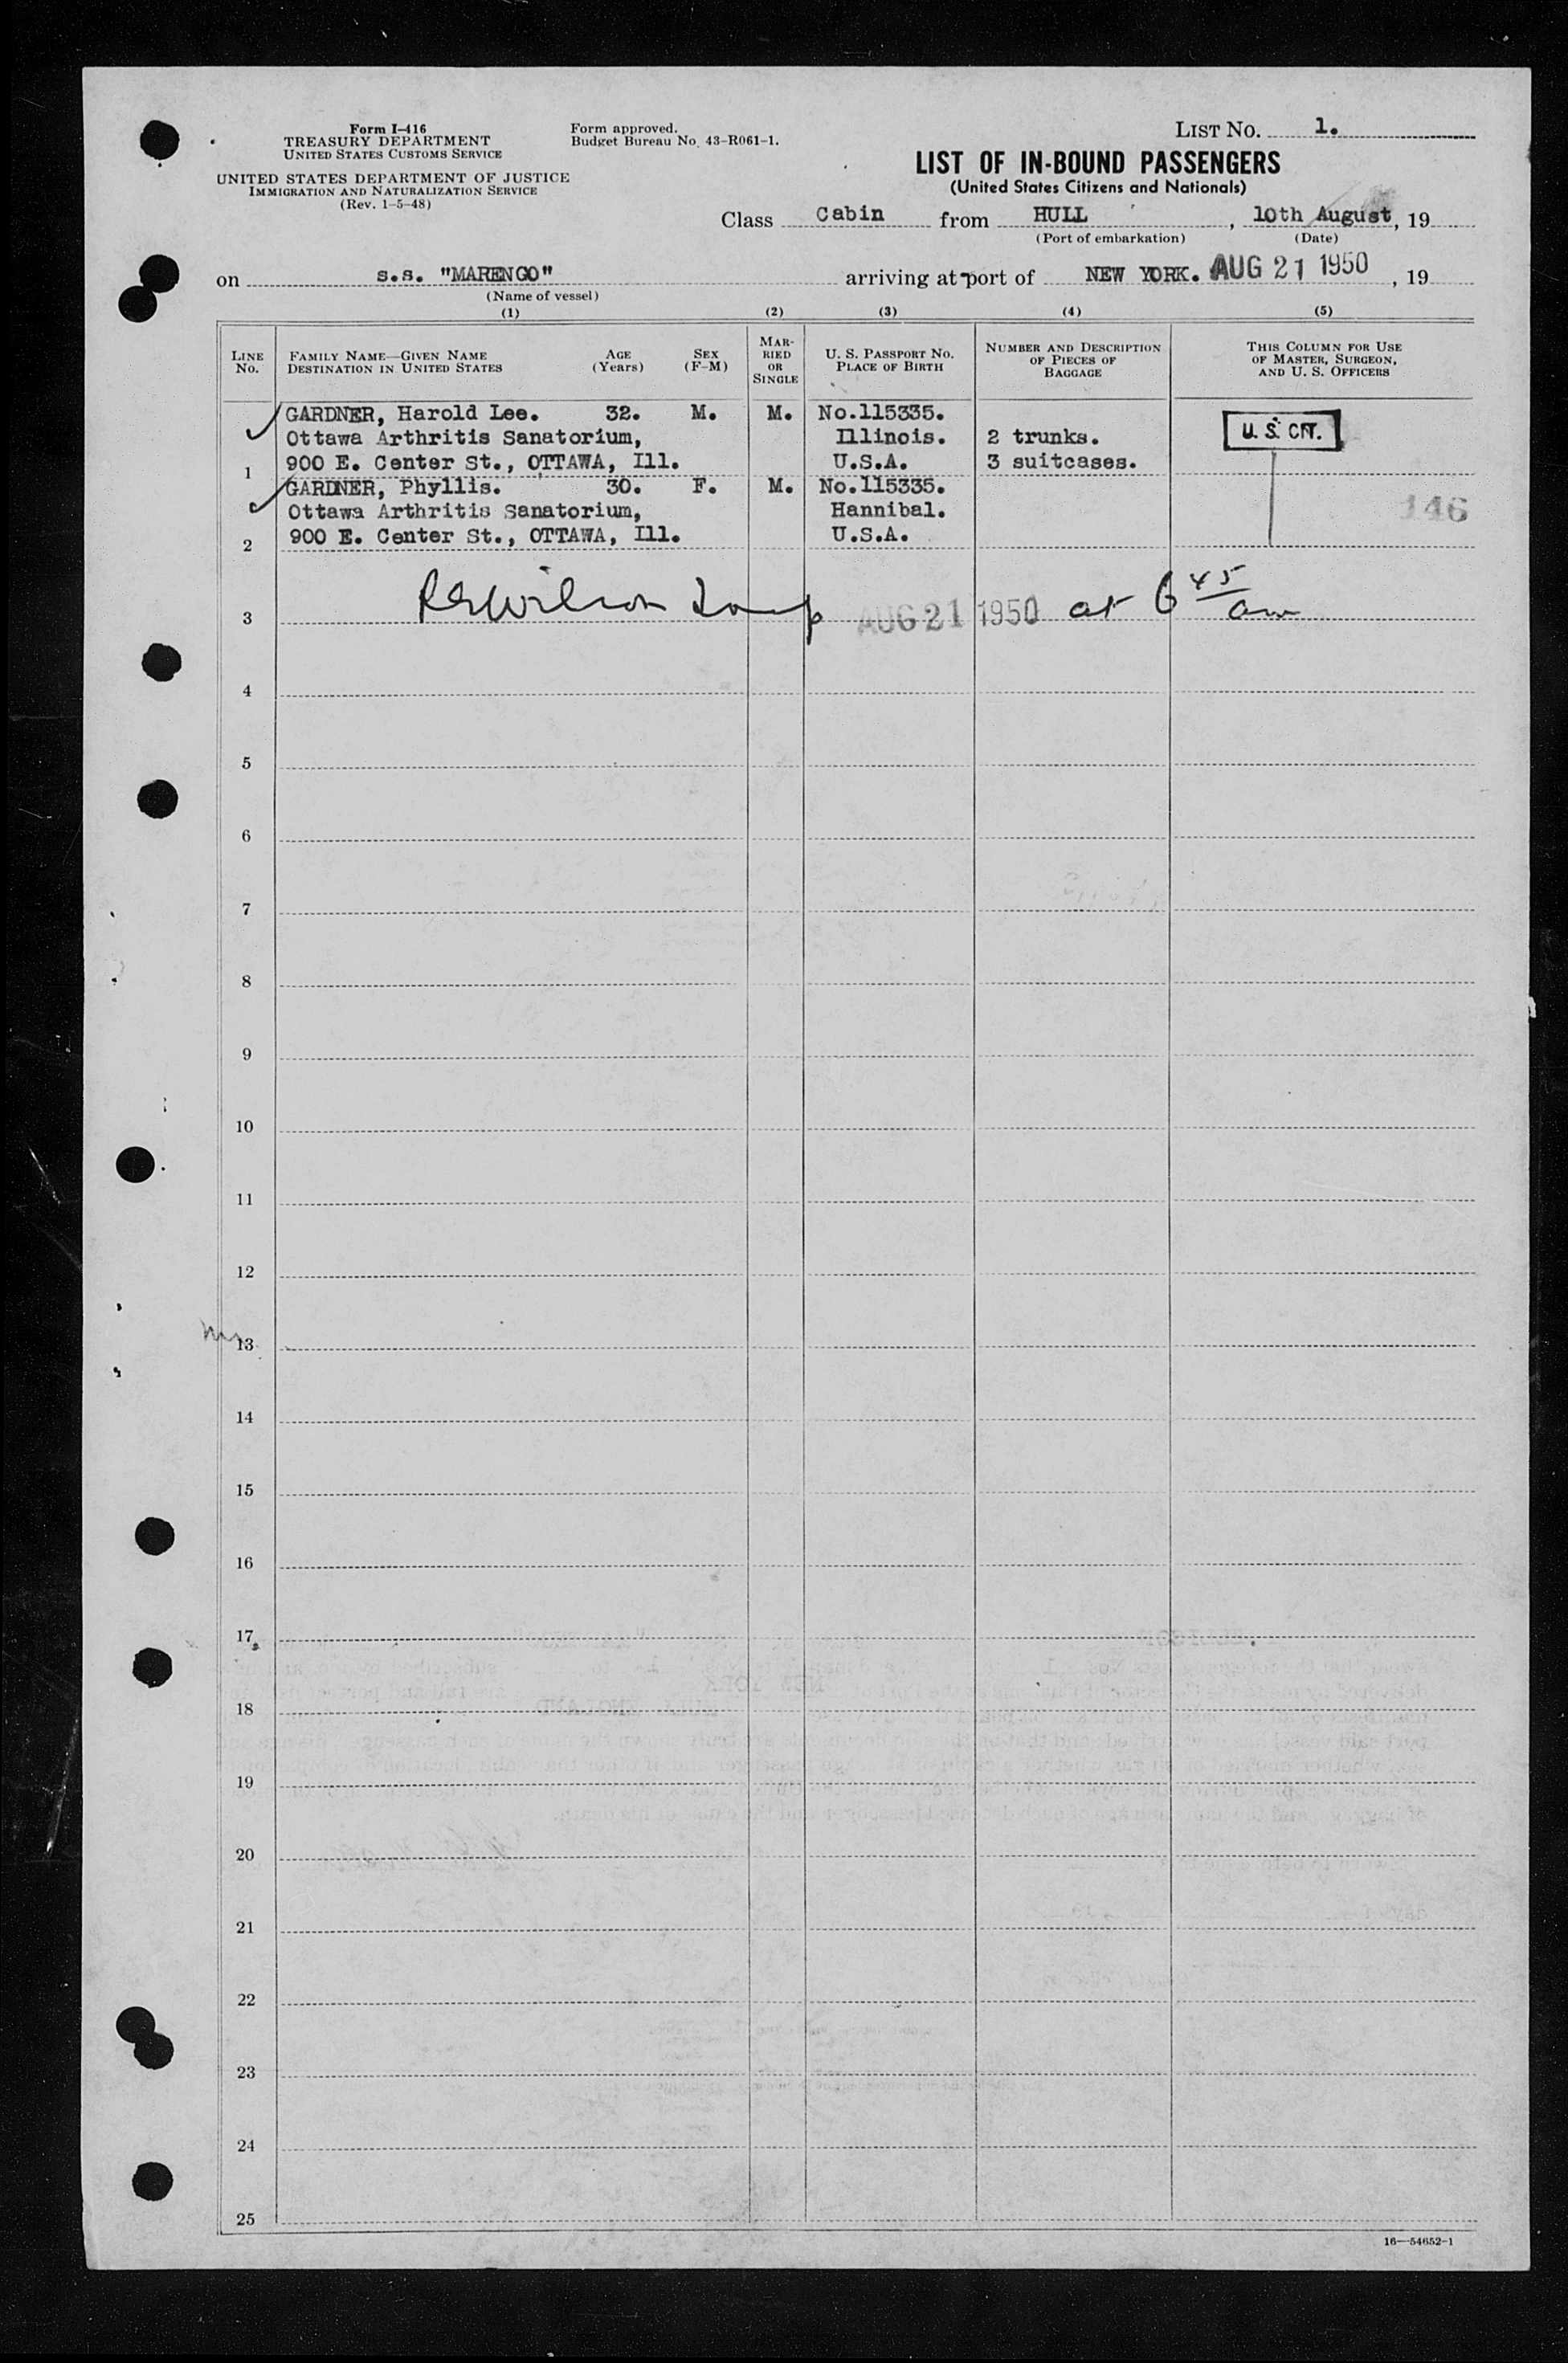 Form I-416
TREASURY DEPARTMENT
UNITED STATES CUSTOMS SERVICE
UNITED STATES DEPARTMENT OF JUSTICE
IMMIGRATION AND NATURALIZATION SERVICE
(Rev. 1-5-48)
Form approved.
Budget Bureau No. 43-R061-1.
LIST NO. 1.
LIST OF IN-BOUND PASSENGERS
(United States Citizens and Nationals)
Class Cabin from HULL, 10th August, 19
(Port of embarkation) (Date)
on s.s. "MARENGO" arriving at port of NEW YORK. AUG 21 1950, 19
(Name of vessel)
(1) (2) (3) (4) (5)
LINE NO.
FAMILY NAME—GIVEN NAME
DESTINATION IN UNITED STATES
AGE (Years)
SEX (F-M)
MARRIED OR SINGLE
U. S. PASSPORT NO.
PLACE OF BIRTH
NUMBER AND DESCRIPTION OF PIECES OF BAGGAGE
THIS COLUMN FOR USE OF MASTER, SURGEON, AND U. S. OFFICERS
GARDNER, Harold Lee. 32. M. M. No.115335.
Ottawa Arthritis Sanatorium, Illinois. 2 trunks. U. S. CIT.
1 900 E. Center St., OTTAWA, Ill. U.S.A. 3 suitcases.
GARDNER, Phyllis. 30. F. M. No.115335.
Ottawa Arthritis Sanatorium, Hannibal. 146
2 900 E. Center St., OTTAWA, Ill. U.S.A.
3 Wilson AUG 21 1950 at 6 45 am
4
5
6
7
8
9
10
11
12
13
14
15
16
17
18
19
20
21
22
23
24
25
16—54652-1